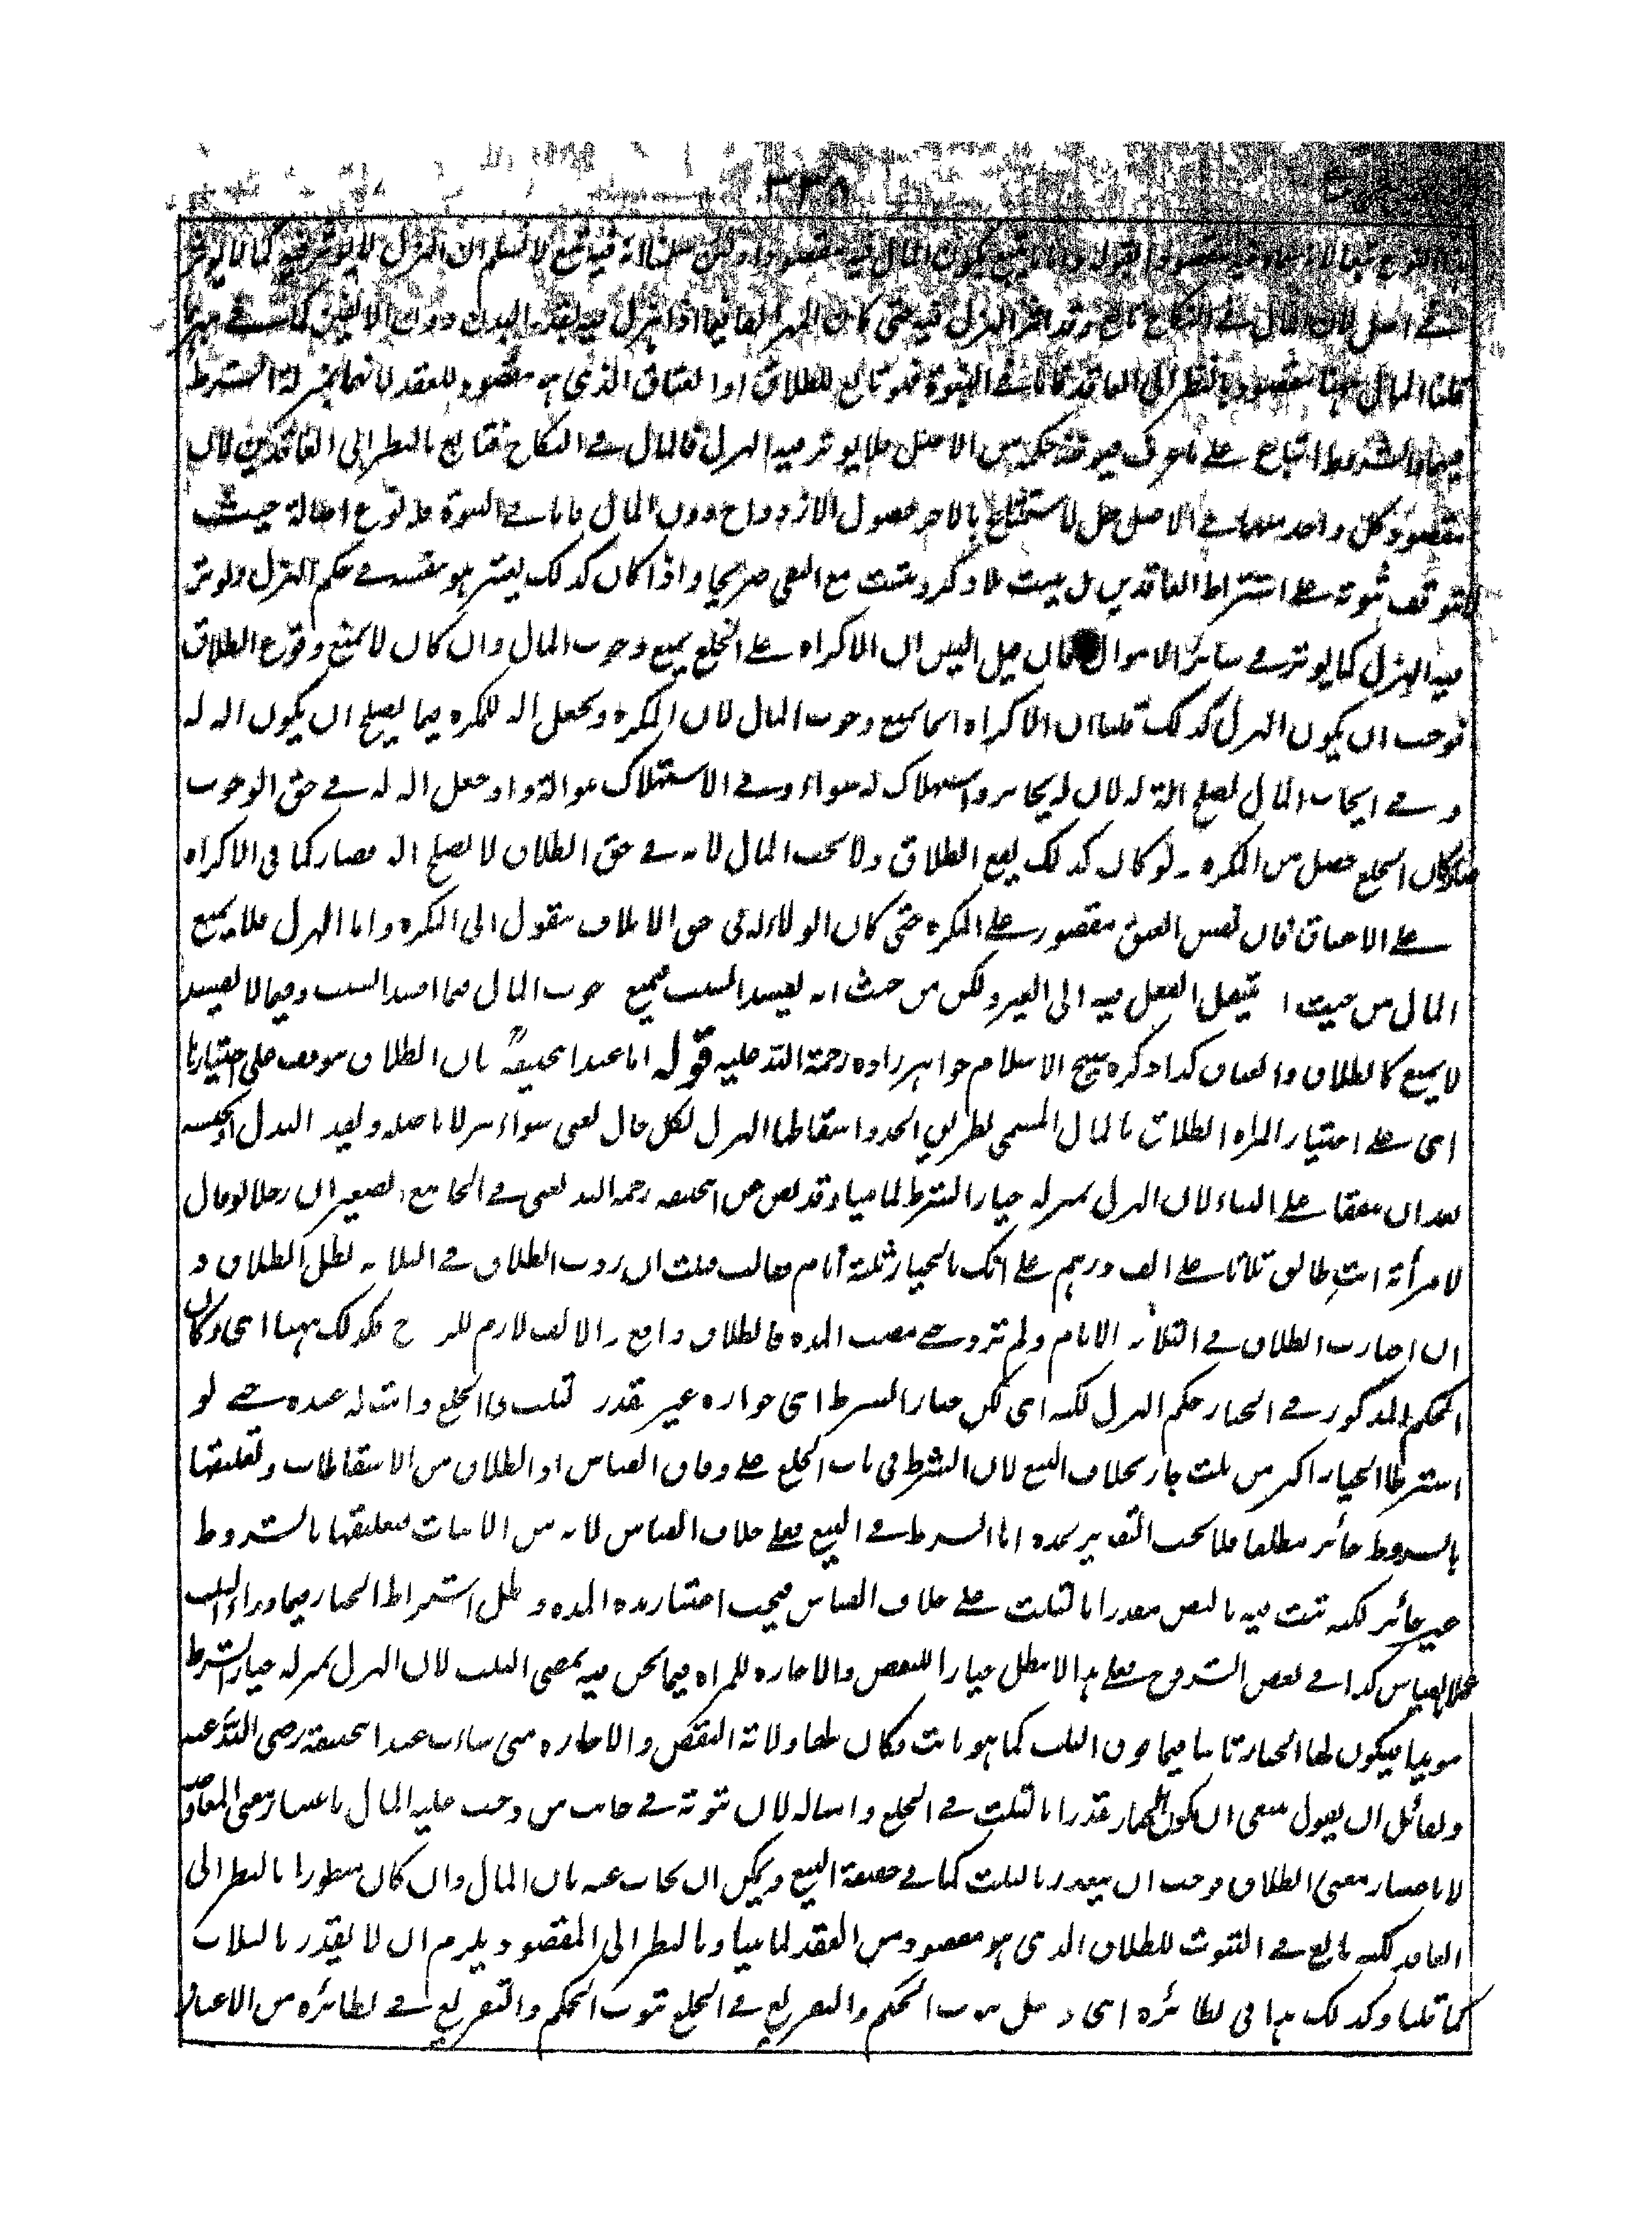 ٣٣٨
هذا النوع تبعا لا مقصودا فيه مقصودا بقوله واما يمنع كون المال فيه مقصودا ولئن سلمنا انه فيه تبع لا نسلم ان الهزل لا يؤثر فيه كما لا يؤثر
في اصله لان المال في النكاح تابع وقد اثر الهزل فيه حتى كان المهر الفا فيما اذا هزل فيه بقدر البدل دون الالفين كما سبق
قلنا المال ههنا مقصود بالنظر الى العاقد فاما في الثبوت فهو تابع للطلاق او العتاق الذي هو مقصود للعقد لانهما بمنزلة الشرط
فيهما والشروط اتباع على ما عرف فيؤخذ حكمه من الاصل فلا يؤثر فيه الهزل فالمال في النكاح فتابع بالنظر الى العاقدين لان
مقصود كل واحد منهما في الاصل حل الاستمتاع بالاخر وحصول الازدواج دون المال فاما في الثبوت فله نوع اصالة حيث
لا يتوقف ثبوته على اشتراط العاقدين بل يثبت بلا ذكر ويثبت مع النفي صريحا واذا كان كذلك يعتبر هو بنفسه في حكم الهزل ويؤثر
فيه الهزل كما يؤثر في سائر الاموال فان قيل اليس ان الاكراه على الخلع يمنع وجوب المال وان كان لا يمنع وقوع الطلاق
فوجب ان يكون الهزل كذلك قلنا ان الاكراه انما يمنع وجوب المال لان المكره يجعل الة للمكره فيما يصلح ان يكون الة له
وفي ايجاب المال يصلح الة له لان له مجامرة واستهلاك له سواء وفي الاستهلاك هو الة واذ جعل الة له في حق الوجوب
صار كأن الخلع حصل من المكره ولو كان كذلك يقع الطلاق ولا يجب المال لانه في حق الطلاق لا يصلح الة فصار كما في الاكراه
على الاعتاق فان نفس العتق مقصور على المكره حتى كان الولاء له في حق الاتلاف منقول الى المكره واما الهزل فلا يمنع
المال من حيث ا ينتقل الفعل فيه الى الغير ولكن من حيث انه يفسد السبب فيمنع وجوب المال فيما افسد السبب وفيما لا يفسد
لا يمنع كالطلاق والعتاق كذا ذكره شيخ الاسلام خواهر زاده رحمة الله عليه قوله اما عند ابي حنيفة فان الطلاق موقف على اختيارها
اي على اختيار المراة الطلاق بالمال المسمى بطريق الجد واسقاطها الهزل بكل حال يعني سواء هزلا باصله وبقدر البدل او بجنسه
بعد ان يتفقا على البناء لان الهزل بمنزلة خيار الشرط لما بينا وقد نص عن ابي حنيفة رحمه الله تعالى في الجامع الصغير ان رجلا لو قال
لامرأته انت طالق ثلاثا على الف درهم على انك بالخيار ثلثة ايام فقالت قبلت ان ردت الطلاق في الثلاثة بطل الطلاق و
ان اختارت الطلاق في الثلاثة الايام ولم ترد حتى مضت المدة فالطلاق واقع والالف لازم للزوج فكذلك ههنا اي وكان
الحكم المذكور في الخيار حكم الهزل لكنه اي لكن خيار الشرط اي جوازه غير مقدر بثلث في الخلع وامثاله عنده حتى لو
اشترطا الخيار اكثر من ثلث جاز بخلاف البيع لان الشرط في باب الخلع على وفاق القياس اذ الطلاق من الاسقاطات وتعليقها
بالشروط جائز مطلقا فلا يجب التقدير بمدة اما الشرط في البيع فعلى خلاف القياس لانه من الاثبات فتعليقها بالشروط
غير جائز لكنه ثبت فيه بالنص مقدرا بالثلث على خلاف القياس فيجب اعتبار هذه المدة وبطل اشتراط الخيار فيما وراء الثلث
عملا بالقياس كذا في بعض الشروح فعلى هذا لا يبطل خيار النقض والاجازة للمراة فيما نحن فيه بمضي الثلث لان الهزل بمنزلة خيار الشرط
مؤبدا فيكون لها الخيار ثابتا فيما فوق الثلث كما هو ثابت وكان لها ولاية النقض والاجازة متى شاءت عند ابي حنيفة رضي الله عنه
ولقائل ان يقول ينبغي ان يكون الخيار مقدرا بالثلث في الخلع وامثاله لان ثبوته في جانب من وجب عليه المال باعتبار معنى المعاوضة
لا باعتبار معنى الطلاق فوجب ان يتقدر بالثلث كما في حقيقة البيع ويمكن ان يجاب عنه بان المال وان كان منظورا بالنظر الى
العاقد لكنه تابع في الثبوت للطلاق الذي هو مقصود من العقد لما بينا وبالنظر الى المقصود يلزم ان لا يقدر بالثلاث
كما قلنا وكذلك هذا في نظائره اي ومثل ثبوت الحكم والتفريع في الخلع ثبوت الحكم والتفريع في نظائره من الاعتاق